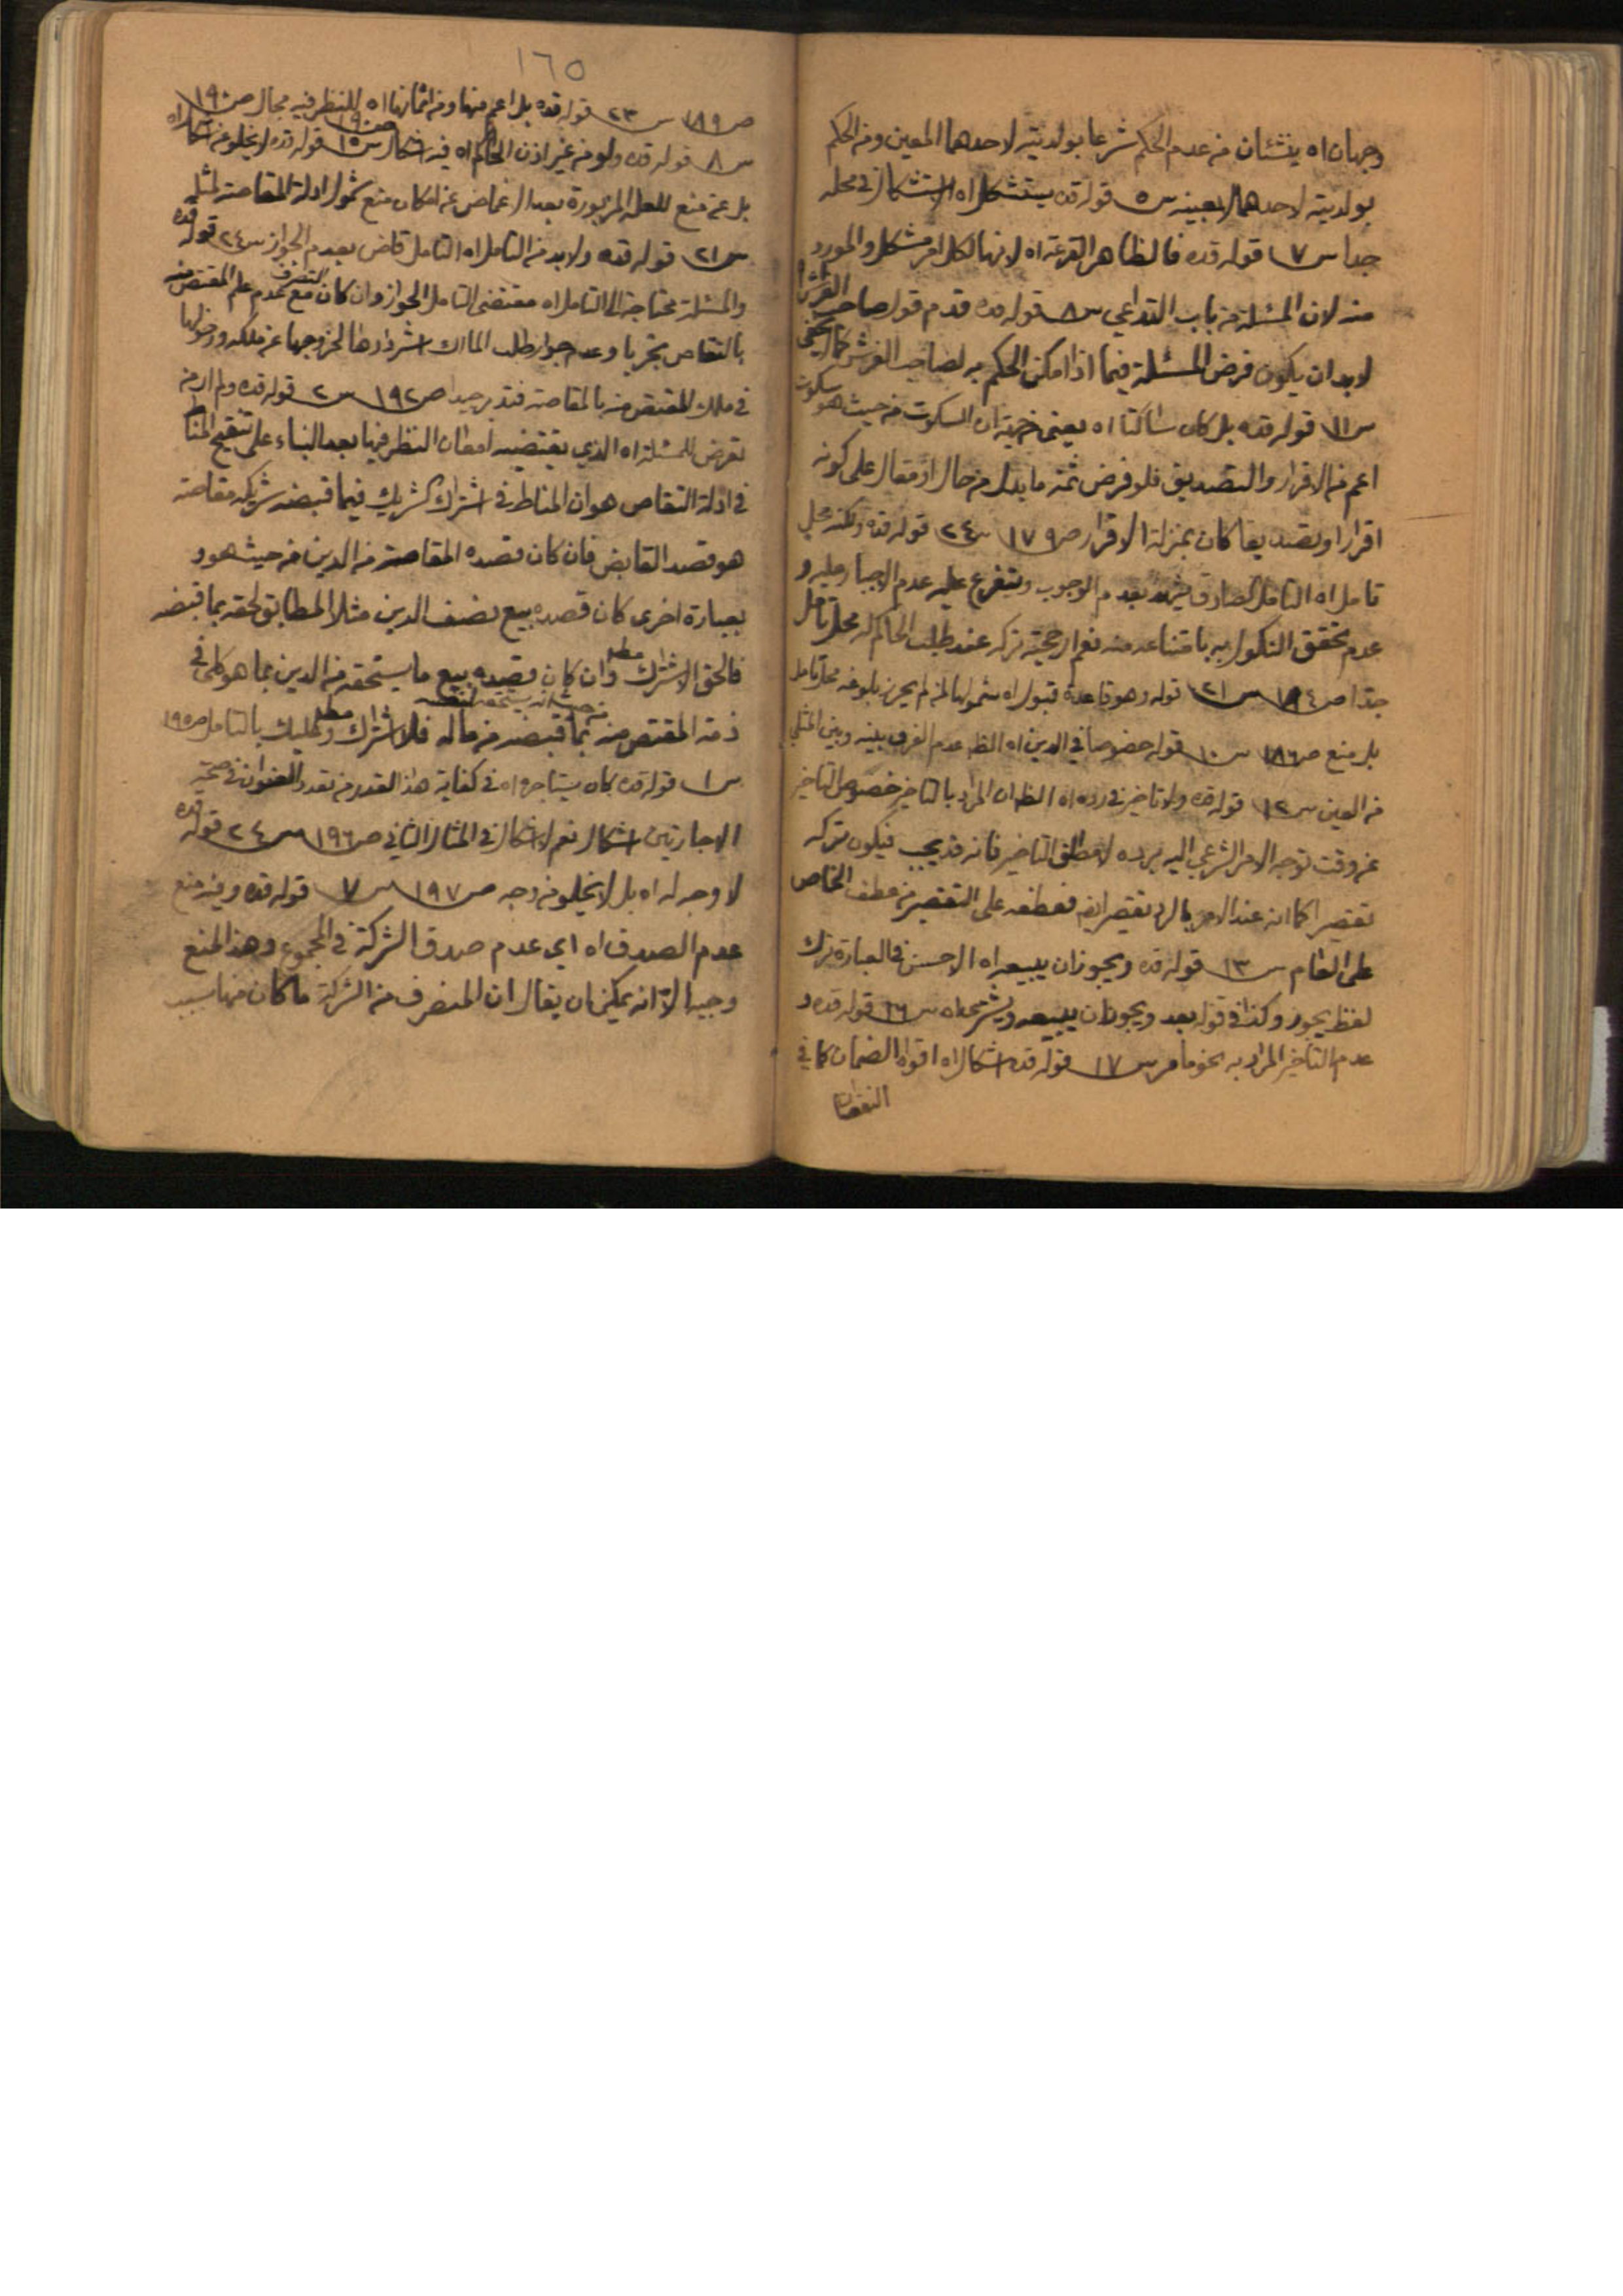 وجهان اه ينشئان من عدم الحكم شرعا بولديته لاحدهما المعين ومن الحكم
بولديته لاحدهما لا بعينه س ٥ قوله قده يستشكل اه الاستشكال في محله
جدا س ٧ قوله قده فالظاهر القرعة اه لانها لكل امر مشكل والمورد
منه لان المسئلة من باب التداعي س ٨ قوله قده قدم قول صاحب الفراش
لابد ان يكون فرض المسئلة فيما اذا امكن الحكم به لصاحب الفرش كما لا يخفى
س ١١ قوله قده بل كان ساكتا اه يعني ان السكوت من حيث هو سكوت
اعم من الاقرار والتصديق فلو فرض ثمة ما يدل من حال او مقال على كونه
اقرارا وتصديقا كان بمنزلة الاقرار ص ١٧٩ س ٢٤ قوله قده ولكنه محل
تامل اه التامل الصادق يشهد بعدم الوجوب ويتفرع عليه عدم الاجبار عليه و
عدم تحقق النكول به بامتناعه منه نعم ارجحية تركه عند طلب الحاكم له محل تامل
جدا ص ١٨٤ س ٢١ قوله وهو قاعدة قبول اه شمولها لمن لم يحرز بلوغه محل تامل
بل منع ص ١٨٦ س ١٠ قوله خصوصا في الدين اه الظ عدم الفرق بينه وبين المثلي
من العين س ١٢ قوله قده ولا تاخير في رده اه الظ ان المراد بالتاخير خصوص التاخير
عن وقت توجه الامر الشرعي اليه برده لا مطلق التاخير فانه قد يجب فيكون تركه
تقصيرا كما انه عند الامر بالرد تقصير ايض فعطفه على التقصير من عطف الخاص
على العام س ١٣ قوله قده ويجوز ان يبيعه اه الاحسن في العبارة ترك
لفظ يجوز وكذا في قوله بعد ويجوز ان يبيعه ويشتري اه س ١٦ قوله قده و
عدم التاخير المراد به نحو ما مر س ١٧ قوله قده اشكال اه اقواه الضمان كما في
النقصان
١٦٥
ص ١٨٩ س ٢٣ قوله قده بل اعم منها ومن اثمانها اه للنظر فيه مجال ص ١٩٠
س ٨ قوله قده ولو من غير اذن الحاكم اه فيه اشكال ص ١٩٠ س ١٥ قوله قده لا يخلو عن اشكال اه
بل عن منع للعلة المزبورة بعد الاغماض عن امكان منع شمول ادلة المقاصة لمثله
س ٢١ قوله قده ولابد من التامل اه التامل قاض بعدم الجواز س ٢٤ قوله قده
والمسئلة محتاجة الى التامل اه مقتضى التامل الجواز وان كان التصرف مع عدم علم المقتص منه
بالتقاص تجريا وعدم جواز طلب المالك استردادها لخروجها عن ملكه ودخولها
في ملك المقتص منه بالمقاصة فتدبر جيدا ص ١٩٢ س ٢ قوله قده ولم ار من
تعرض للمسئلة اه الذي يقتضيه امعان النظر فيها بعد البناء على تنقيح المناط
في ادلة التقاص هو ان المناط في اشتراك الشريك فيما قبضه شريكه مقاصة
هو قصد القابض فان كان قصده المقاصة من الدين من حيث هو و
بعبارة اخرى كان قصده بيع نصف الدين مثلا المطابق لحقه بما قبضه
فالحق الاشتراك مط وان كان قصده بيع ما يستحقه من الدين بما هو كلي في
من حيث انه يستحقه
ذمة المقتص منه بما قبضه من ماله فلا اشتراك مط وعليك بالتامل ص ١٩٥
س ١ قوله قده كان يستاجره اه في كفاية هذا القدر من تعدد العنوان في صحة
الاجارتين اشكال نعم لا اشكال في المثال الثاني ص ١٩٦ س ٢٤ قوله قده
لا وجه له اه بل لا يخلو من وجه ص ١٩٧ س ٧ قوله قده وفيه منع
عدم الصدق اه اي عدم صدق الشركة في المجموع وهذا المنع
وجيه الا انه يمكن ان يقال ان المنصرف من الشركة ما كان منها بسبب